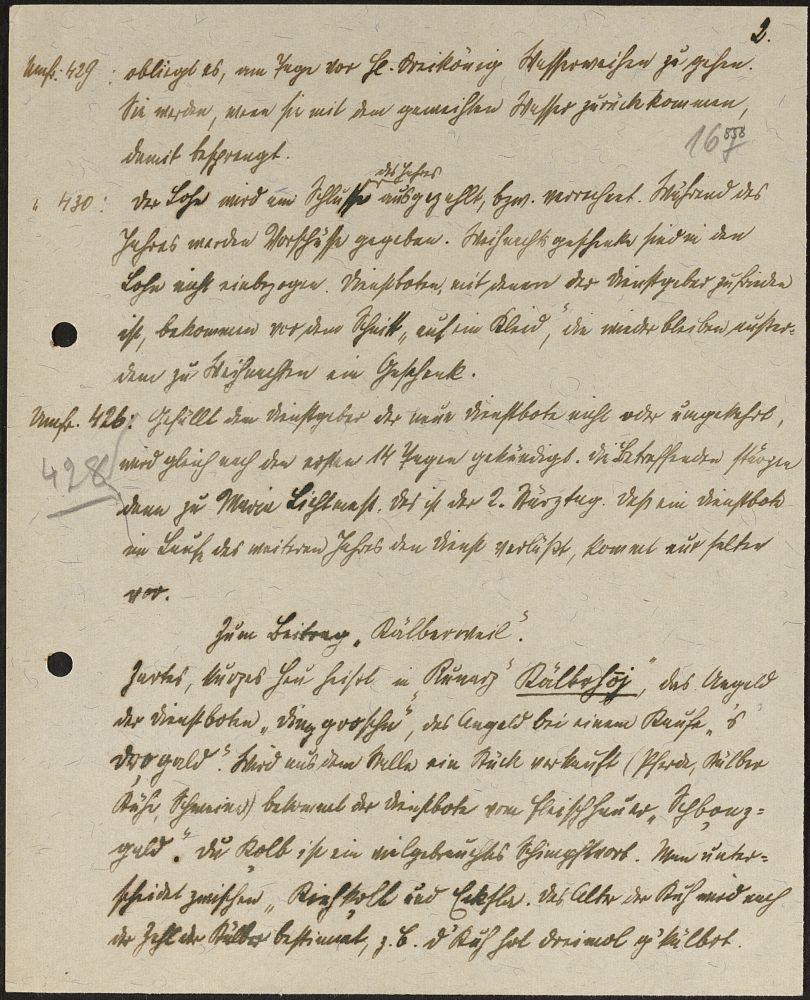 2.
Umfr. 429 : obliegt es, am Tage vor Hl. Dreikönig Wasserweihen zu gehen.
Sie werden, wenn sie mit dem geweihten Wasser zurückkommen,
damit besprengt.
16 558/7
" 430 : Der Lohn wird am Schlusse des Jahres ausgezahlt, bzw. verrechnet. Während des
Jahres werden Vorschüsse gegeben. Weihnachtsgeschenke sind in den
Lohn nicht einbezogen. Dienstboten, mit denen der Dienstgeber zufrieden
ist, bekommen vor dem Schnitt „auf ein Kleid“, die wieder bleiben außer-
dem zu Weihnachten ein Geschenk.
Umfr. 426: Gefällt dem Dienstgeber der neue Dienstbote nicht oder umgekehrt,
428 wird gleich nach den ersten 14 Tagen gekündigt. Die Betreffenden stürzen
dann zu Maria Lichtmeß. Das ist der 2. Stürztag. Daß ein Dienstbote
im Laufe des weiteren Jahres den Dienst verläßt, kommt nur selten
vor.
Zum Beitrag „Kälberweil“.
Zartes, kurzes Heu heißt in „Kälbahöj“, das Angeld
der Dienstboten „Dinggroschn“, das Angeld bei einem Kaufe „'s
Drogald“. Wird aus dem Stalle ein Stück verkauft (Pferde, Kälber
Kühe, Schweine) bekommt der Dienstbote vom Fleischhauer „Schbonz-
gald“. Du Kolb ist ein vielgebrauchtes Schimpfwort. Man unter-
scheidet zwischen „ und . Das Alter der Kuh wird nach
der Zahl der Kälber bestimmt, z. B. d' Kuh hot dreimol g'kälbot.